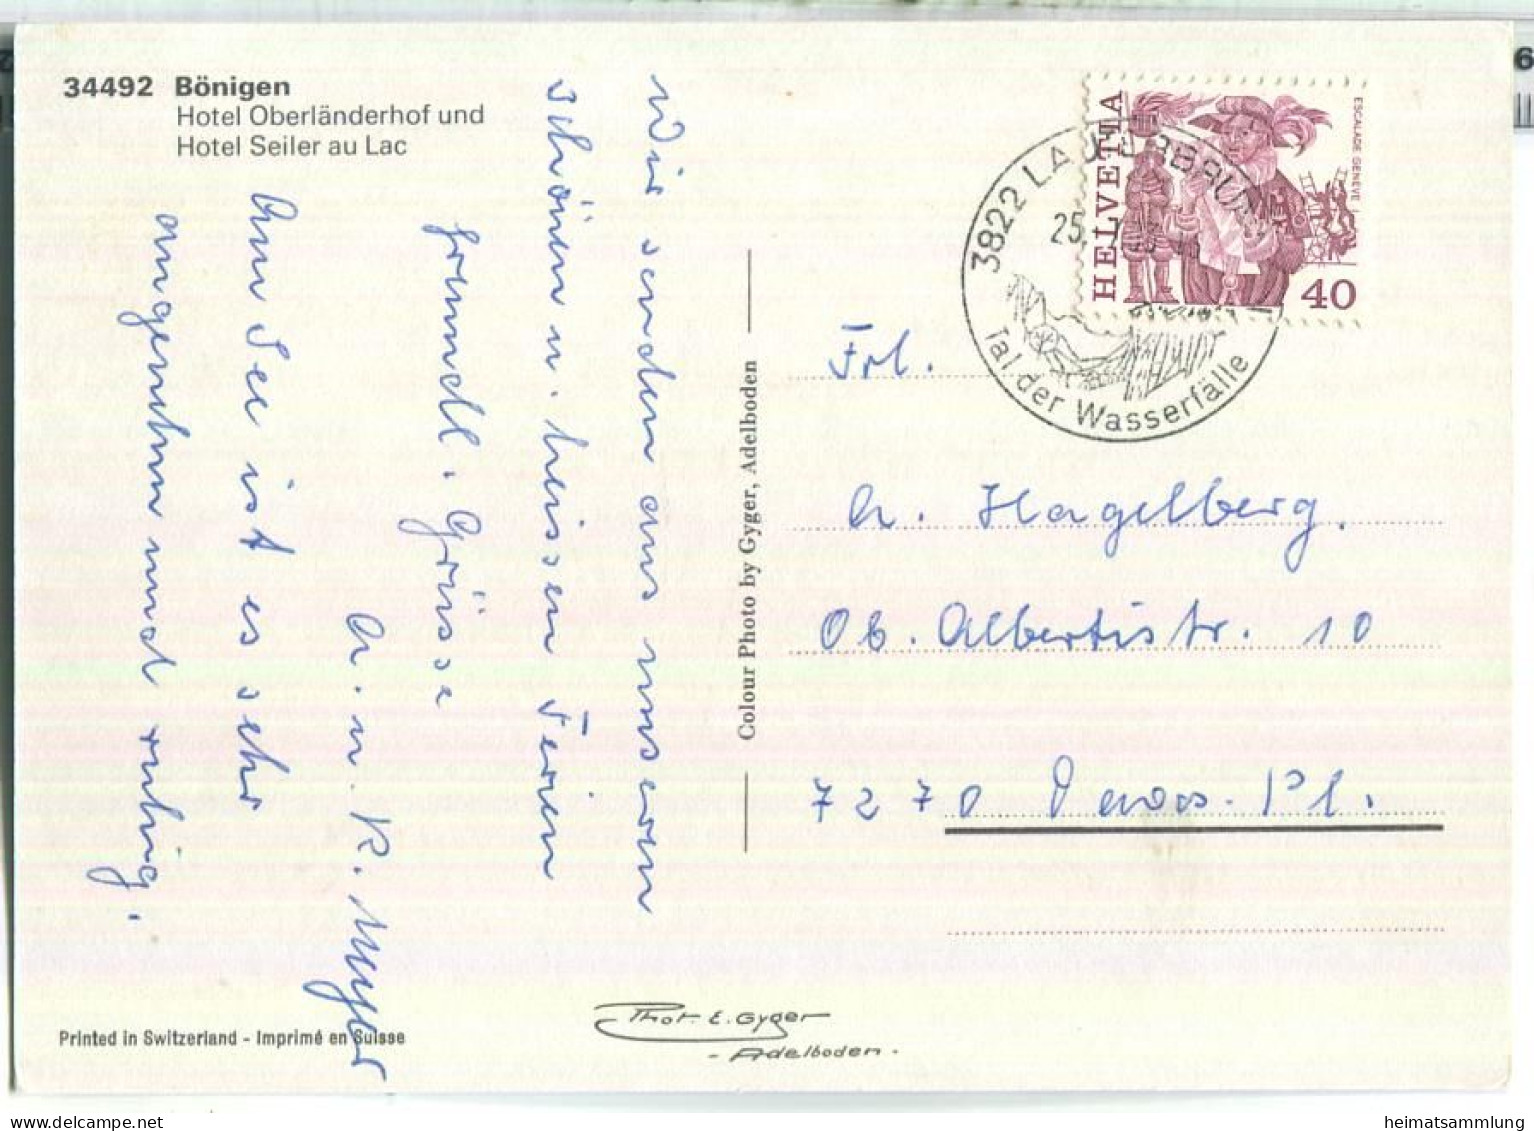 34492 Bönigen
Hotel Oberländerhof und
Hotel Seiler au Lac
Wir senden aus unseren
schönen u. heissen Ferien
freundl. Grüsse
A. u. R. Meyer
Am See ist es sehr
angenehm und ruhig.
Printed in Switzerland - Imprimé en Suisse
Colour Photo by Gyger, Adelboden
Phot. E. Gyger
- Adelboden -
HELVETIA
ESCALADE GENÈVE
40
3822 LAUTERBRUNNEN
25.
Tal der Wasserfälle
Frl.
A. Hagelberg.
Ob. Albertistr. 10
7270 Davos-Pl.
delcampe.net
heimatsammlung